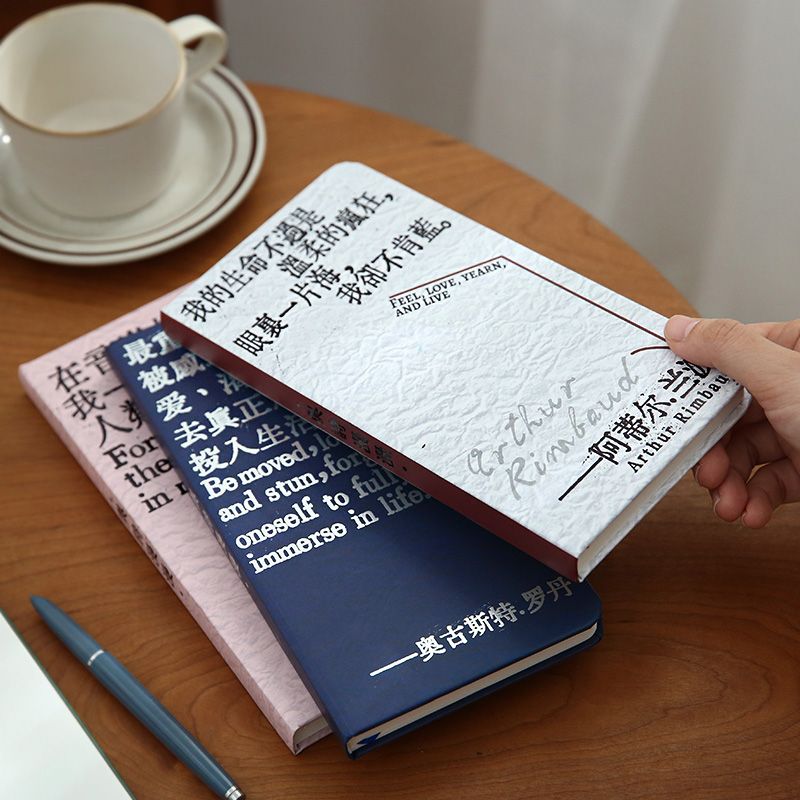 我的生命不過是
溫柔的瘋狂,
眼裏一片海,
我卻不肯藍。
FEEL, LOVE, YEARN,
AND LIVE
Arthur
Rimbaud
——阿蒂尔.兰波
Arthur Rimbaud
被感
爱、
去真正
投入生活
Be moved, lo
and stun, forg
oneself to full
immerse in life.
——奥古斯特.罗丹
在音
我一
人类
For
the
in